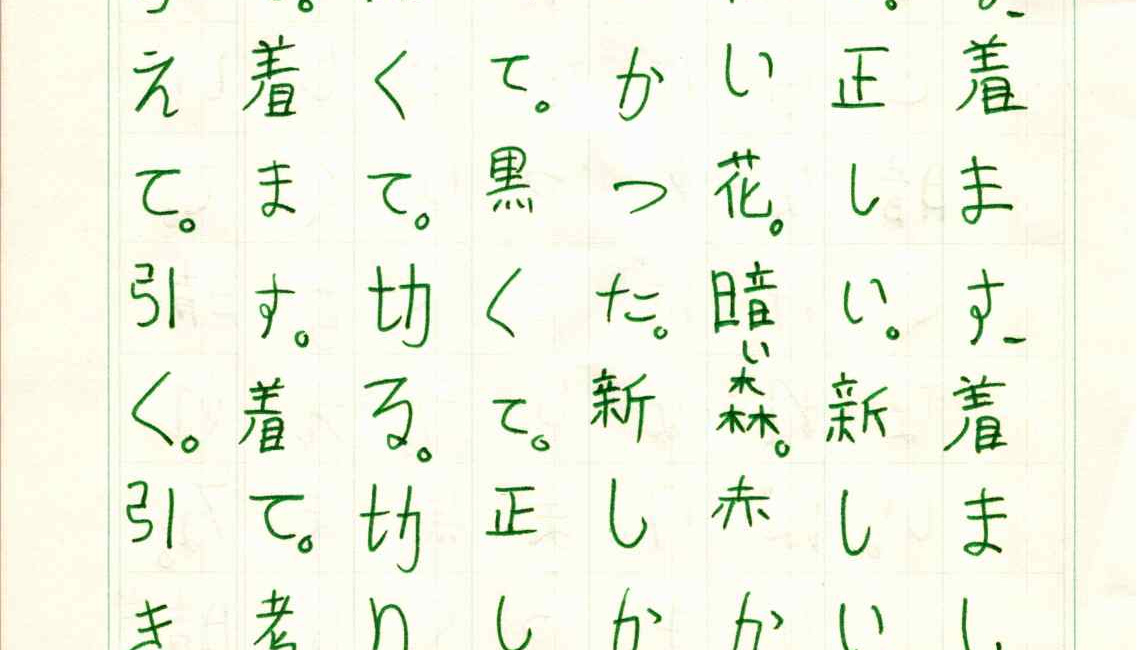 着ます、着まし
正しい。新しい
い花。暗い森。赤か
かった。新しか
て。黒くて。正し
くて。切る。切り
着ます。着て。考
えて。引く。引き